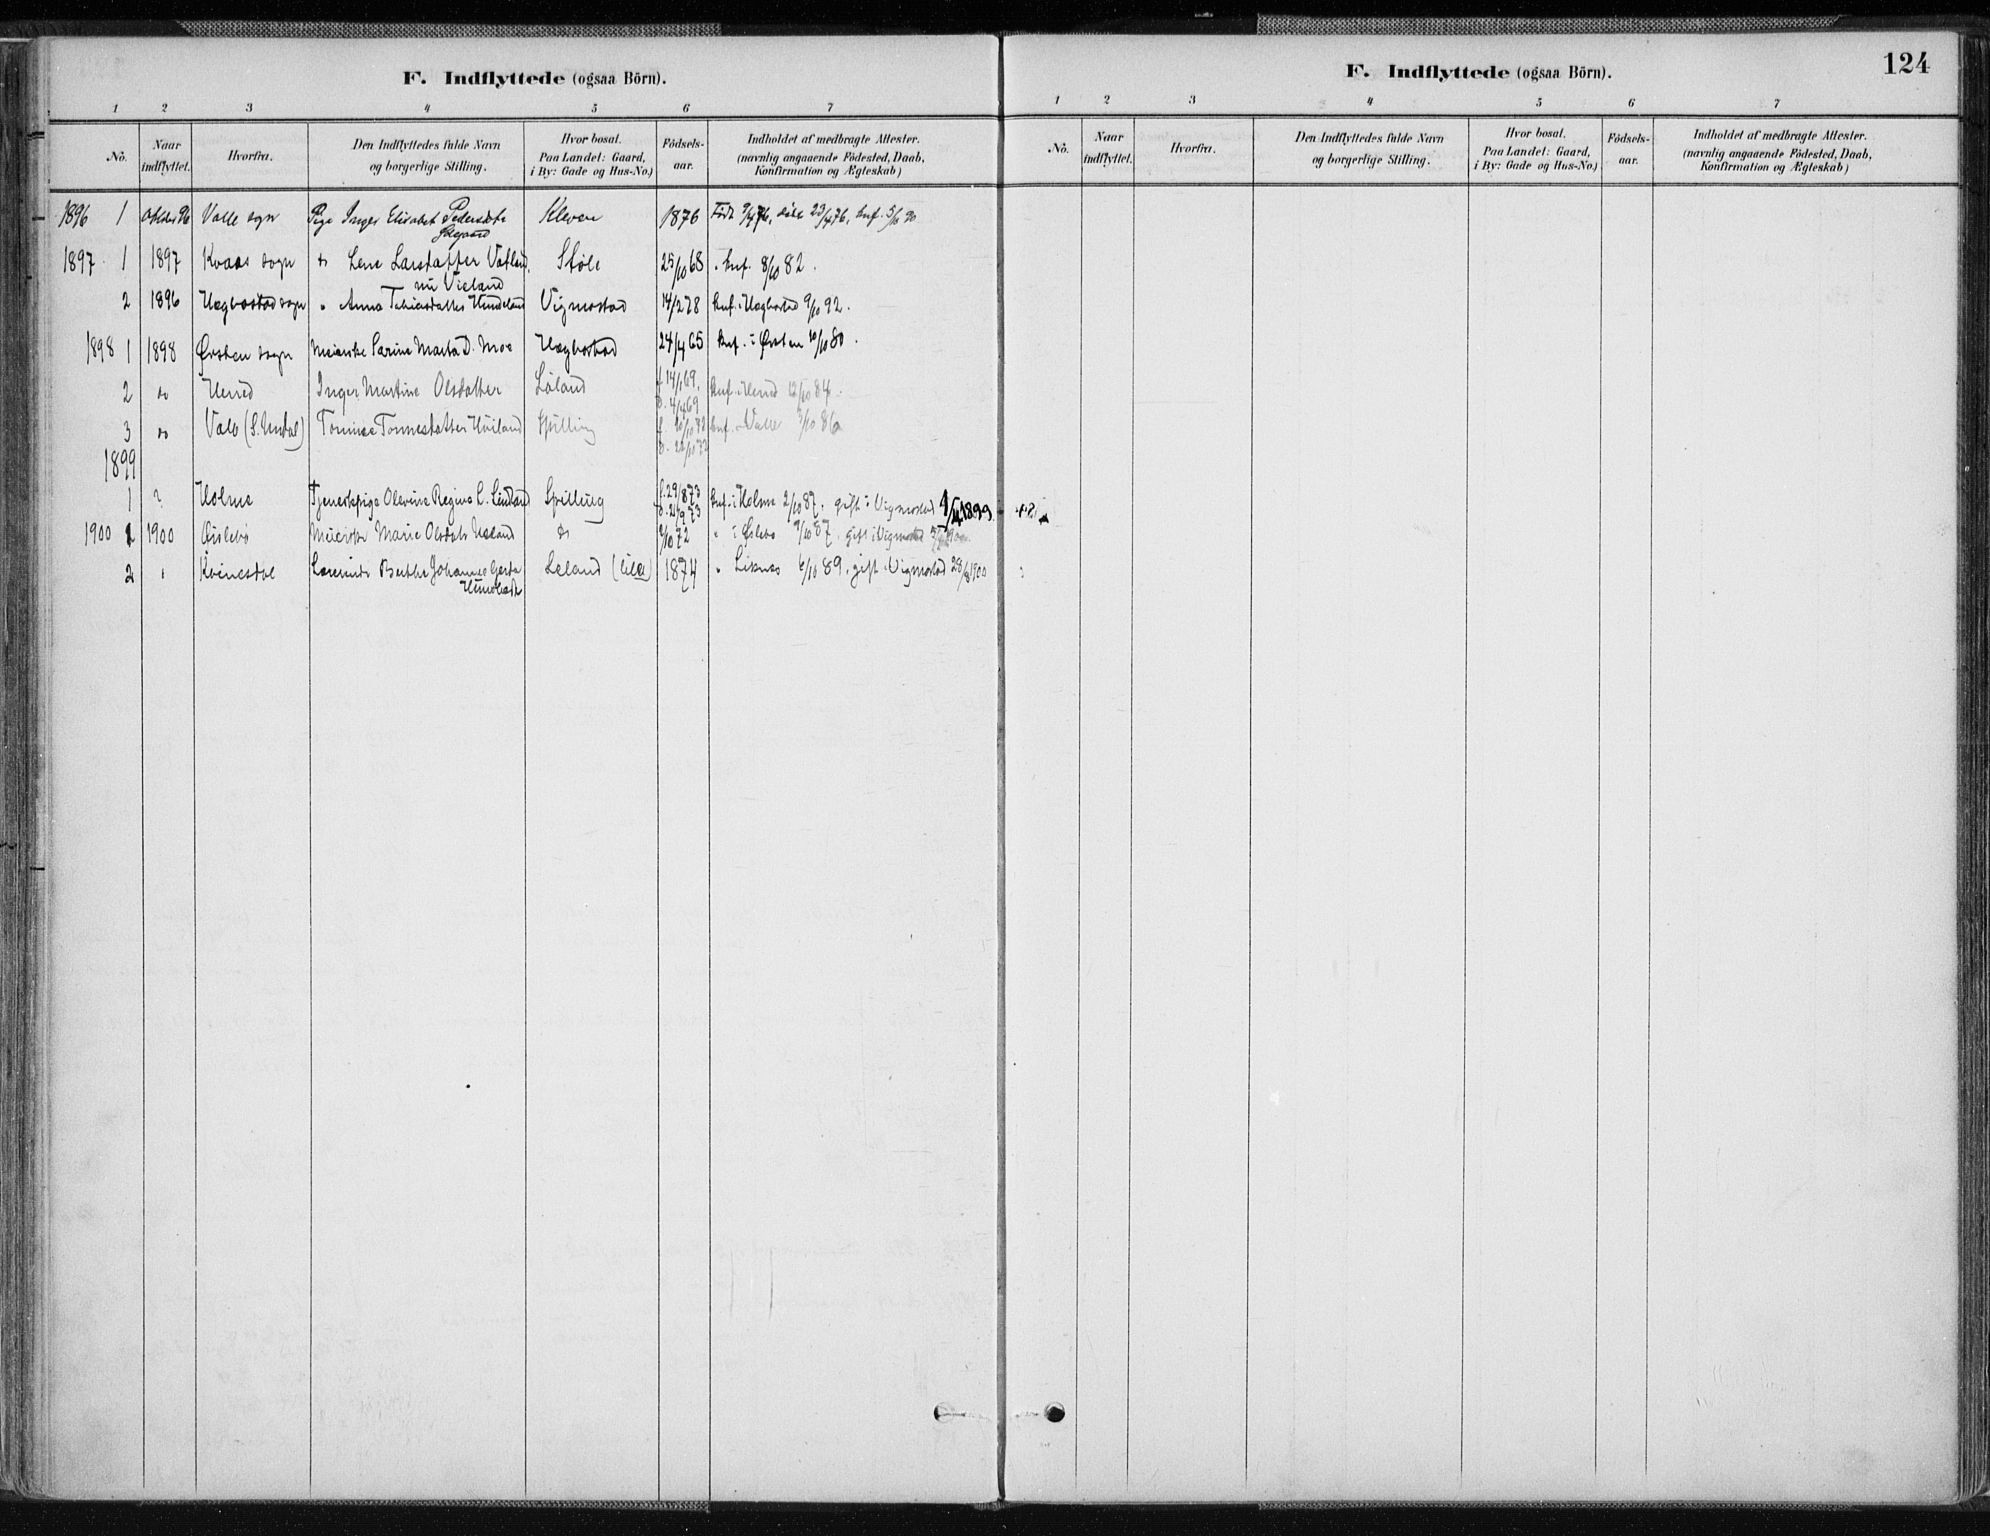 F. Indflyttede (ogsaa Börn).
1 2 3 4 5 6 7
No. Naar indflyttet. Hvorfra. Den Indflyttedes fulde Navn og borgerlige Stilling. Hvor bosat. Paa Landet: Gaard, i By: Gade og Hus-No.) Födsels-aar. Indholdet af medbragte Attester. (navnlig angaaende Födested, Daab, Konfirmation og Ægteskab)
1896 1 Oktbr 96 Valle sogn Pige Inger Elisabet Pedersdtr Kleven 1876 Født 9/4 76, døbt 23/4 76, kuf. 5/10 90
1897 1 1897 Kvaas sogn do Lene Larsdatter Støle 25/10 68 . kuf. 8/10 82.
nu Vieland
2 1896 Hægbostad sogn " Anna Tobiasdatter Vigmostad 14/2 78 kuf. i Hægbostad 9/10 92.
1898 1 1898 Ørsten sogn Meierske Sarine Marta D. Moe Hægbostad 24/4 65 kuf. i Ørsten 10/10 80.
2 do Herred Inger Martine Olsdatter Løland f 14/1 69, kuf. i Herred 12/10 84.
d. 4/4 69
3 do Valle (S. Undal) Tonnesdatter Høiland Spilling f. 20/10 72 kuf. i Valle 3/10 86
1899
1 ? Holme Tjenestpige Olevine Regine C. Lindland Spilling f. 29/8 73 kuf. i Holme 2/10 87. gift i Vigmostad 9/4 1899
d. 21/9 73
1900 1 1900 Øislebø Meierske Marie Olsdatr do 9/10 72 " i Øslebø 9/10 87. gift i Vigmostad
2 " Kvinesdal Lærerinde Berthe Johanne Gjerda Leland (lille) 1874 " Liknes 6/10 89. gift i Vigmostad 28/8 1900
F. Indflyttede (ogsaa Börn).
124
1 2 3 4 5 6 7
No. Naar indflyttet. Hvorfra. Den Indflyttedes fulde Navn og borgerlige Stilling. Hvor bosat. Paa Landet: Gaard, i By: Gade og Hus-No.) Födsels-aar. Indholdet af medbragte Attester. (navnlig angaaende Födested, Daab, Konfirmation og Ægteskab)